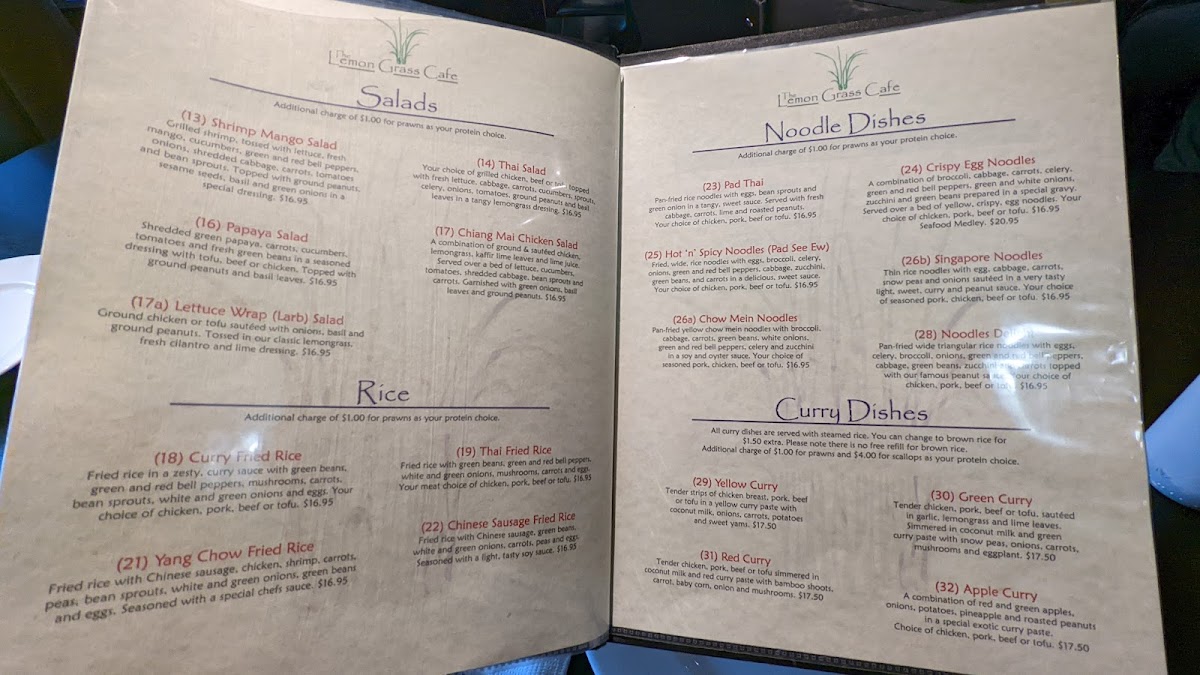 The
Lemon Grass Cafe
Salads
Additional charge of $1.00 for prawns as your protein choice.
(13) Shrimp Mango Salad
Grilled shrimp, tossed with lettuce, fresh
mango, cucumbers, green and red bell peppers,
onions, shredded cabbage, carrots, tomatoes
and bean sprouts. Topped with ground peanuts,
sesame seeds, basil and green onions in a
special dressing. $16.95
(14) Thai Salad
Your choice of grilled chicken, beef or tofu topped
with fresh lettuce, cabbage, carrots, cucumbers, sprouts,
celery, onions, tomatoes, ground peanuts and basil
leaves in a tangy lemongrass dressing. $16.95
(16) Papaya Salad
Shredded green papaya, carrots, cucumbers,
tomatoes and fresh green beans in a seasoned
dressing with tofu, beef or chicken. Topped with
ground peanuts and basil leaves. $16.95
(17) Chiang Mai Chicken Salad
A combination of ground & sautéed chicken,
lemongrass, kaffir lime leaves and lime juice.
Served over a bed of lettuce, cucumbers,
tomatoes, shredded cabbage, bean sprouts and
carrots. Garnished with green onions, basil
leaves and ground peanuts. $16.95
(17a) Lettuce Wrap (Larb) Salad
Ground chicken or tofu sautéed with onions, basil and
ground peanuts. Tossed in our classic lemongrass,
fresh cilantro and lime dressing. $16.95
Rice
Additional charge of $1.00 for prawns as your protein choice.
(18) Curry Fried Rice
Fried rice in a zesty, curry sauce with green beans,
green and red bell peppers, mushrooms, carrots,
bean sprouts, white and green onions and eggs. Your
choice of chicken, pork, beef or tofu. $16.95
(19) Thai Fried Rice
Fried rice with green beans, green and red bell peppers,
white and green onions, mushrooms, carrots and egg.
Your meat choice of chicken, pork, beef or tofu. $16.95
(21) Yang Chow Fried Rice
Fried rice with Chinese sausage, chicken, shrimp, carrots,
peas, bean sprouts, white and green onions, green beans
and eggs. Seasoned with a special chefs sauce. $16.95
(22) Chinese Sausage Fried Rice
Fried rice with Chinese sausage, green beans,
white and green onions, carrots, peas and egg.
Seasoned with a light, tasty soy sauce. $16.95
The
Lemon Grass Cafe
Noodle Dishes
Additional charge of $1.00 for prawns as your protein choice.
(23) Pad Thai
Pan-fried rice noodles with eggs, bean sprouts and
green onion in a tangy, sweet sauce. Served with fresh
cabbage, carrots, lime and roasted peanuts.
Your choice of chicken, pork, beef or tofu. $16.95
(24) Crispy Egg Noodles
A combination of broccoli, cabbage, carrots, celery,
green and red bell peppers, green and white onions,
zucchini and green beans prepared in a special gravy.
Served over a bed of yellow, crispy, egg noodles. Your
choice of chicken, pork, beef or tofu. $16.95
Seafood Medley. $20.95
(25) Hot 'n' Spicy Noodles (Pad See Ew)
Fried, wide, rice noodles with eggs, broccoli, celery,
onions, green and red bell peppers, cabbage, zucchini,
green beans, and carrots in a delicious, sweet sauce.
Your choice of chicken, pork, beef or tofu. $16.95
(26b) Singapore Noodles
Thin rice noodles with egg, cabbage, carrots,
snow peas and onions sautéed in a very tasty
light, sweet, curry and peanut sauce. Your choice
of seasoned pork, chicken, beef or tofu. $16.95
(26a) Chow Mein Noodles
Pan-fried yellow chow mein noodles with broccoli,
cabbage, carrots, green beans, white onions,
green and red bell peppers, celery and zucchini
in a soy and oyster sauce. Your choice of
seasoned pork, chicken, beef or tofu. $16.95
(28) Noodles
Pan-fried wide triangular rice noodles with eggs,
celery, broccoli, onions, green and red bell peppers,
cabbage, green beans, zucchini and carrots topped
with our famous peanut sauce. Your choice of
chicken, pork, beef or tofu. $16.95
Curry Dishes
All curry dishes are served with steamed rice. You can change to brown rice for
$1.50 extra. Please note there is no free refill for brown rice.
Additional charge of $1.00 for prawns and $4.00 for scallops as your protein choice.
(29) Yellow Curry
Tender strips of chicken breast, pork, beef
or tofu in a yellow curry paste with
coconut milk, onions, carrots, potatoes
and sweet yams. $17.50
(30) Green Curry
Tender chicken, pork, beef or tofu, sautéed
in garlic, lemongrass and lime leaves.
Simmered in coconut milk and green
curry paste with snow peas, onions, carrots,
mushrooms and eggplant. $17.50
(31) Red Curry
Tender chicken, pork, beef or tofu simmered in
coconut milk and red curry paste with bamboo shoots,
carrot, baby corn, onion and mushrooms. $17.50
(32) Apple Curry
A combination of red and green apples,
onions, potatoes, pineapple and roasted peanuts
in a special exotic curry paste.
Choice of chicken, pork, beef or tofu. $17.50